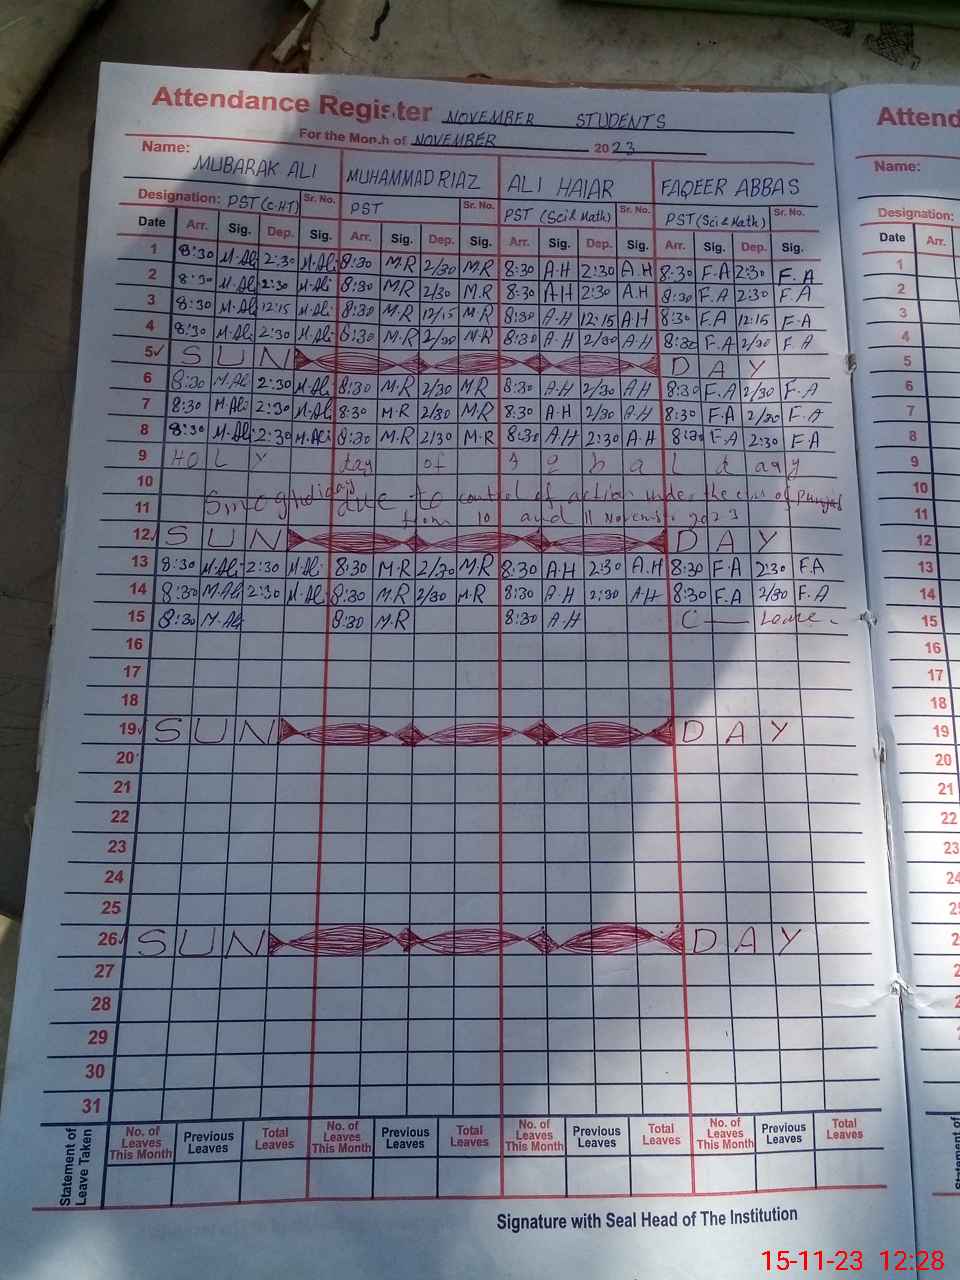 Attendance Register NOVEMBER STUDENTS
For the Month of NOVEMBER 2023
Name: MUBARAK ALI MUHAMMAD RIAZ ALI HAIAR FAQEER ABBAS
Designation: PST (C.HT) Sr. No. PST Sr. No. PST (Sci & Math) Sr. No. PST (Sci & Math) Sr. No.
Date Arr. Sig. Dep. Sig. Arr. Sig. Dep. Sig. Arr. Sig. Dep. Sig. Arr. Sig. Dep. Sig.
1 8:30 M.Ali 2:30 M.Ali 8:30 M.R 2/30 M.R 8:30 A.H 2:30 A.H 8:30 F.A 2:30 F.A
2 8:30 M.Ali 2:30 M.Ali 8:30 M.R 2/30 M.R 8:30 A.H 2:30 A.H 8:30 F.A 2:30 F.A
3 8:30 M.Ali 12:15 M.Ali 8:30 M.R 12/15 M.R 8:30 A.H 12:15 A.H 8:30 F.A 12:15 F.A
4 8:30 M.Ali 2:30 M.Ali 8:30 M.R 2/30 M.R 8:30 A.H 2/30 A.H 8:30 F.A 2/30 F.A
5 SUN DAY
6 8:30 M.Ali 2:30 M.Ali 8:30 M.R 2/30 M.R 8:30 A.H 2/30 A.H 8:30 F.A 2/30 F.A
7 8:30 M.Ali 2:30 M.Ali 8:30 M.R 2/30 M.R 8:30 A.H 2/30 A.H 8:30 F.A 2/30 F.A
8 8:30 M.Ali 2:30 M.Ali 8:30 M.R 2/30 M.R 8:30 A.H 2:30 A.H 8:30 F.A 2:30 F.A
9 HOLY day of
10
11 Smog holiday due to control of action under the of Punjab
from 10 and 11 November 2023
12 SUN DAY
13 8:30 M.Ali 2:30 M.Ali 8:30 M.R 2/30 M.R 8:30 A.H 2:30 A.H 8:30 F.A 2:30 F.A
14 8:30 M.Ali 2:30 M.Ali 8:30 M.R 2/30 M.R 8:30 A.H 2:30 A.H 8:30 F.A 2/30 F.A
15 8:30 M.Ali 8:30 M.R 8:30 A.H C — Leave.
16
17
18
19 SUN DAY
20
21
22
23
24
25
26 SUN DAY
27
28
29
30
31
Statement of Leave Taken
No. of Leaves This Month Previous Leaves Total Leaves No. of Leaves This Month Previous Leaves Total Leaves No. of Leaves This Month Previous Leaves Total Leaves No. of Leaves This Month Previous Leaves Total Leaves
Signature with Seal Head of The Institution
Attend
Name:
Designation:
Date Arr.
1
2
3
4
5
6
7
8
9
10
11
12
13
14
15
16
17
18
19
20
21
22
23
15-11-23 12:28